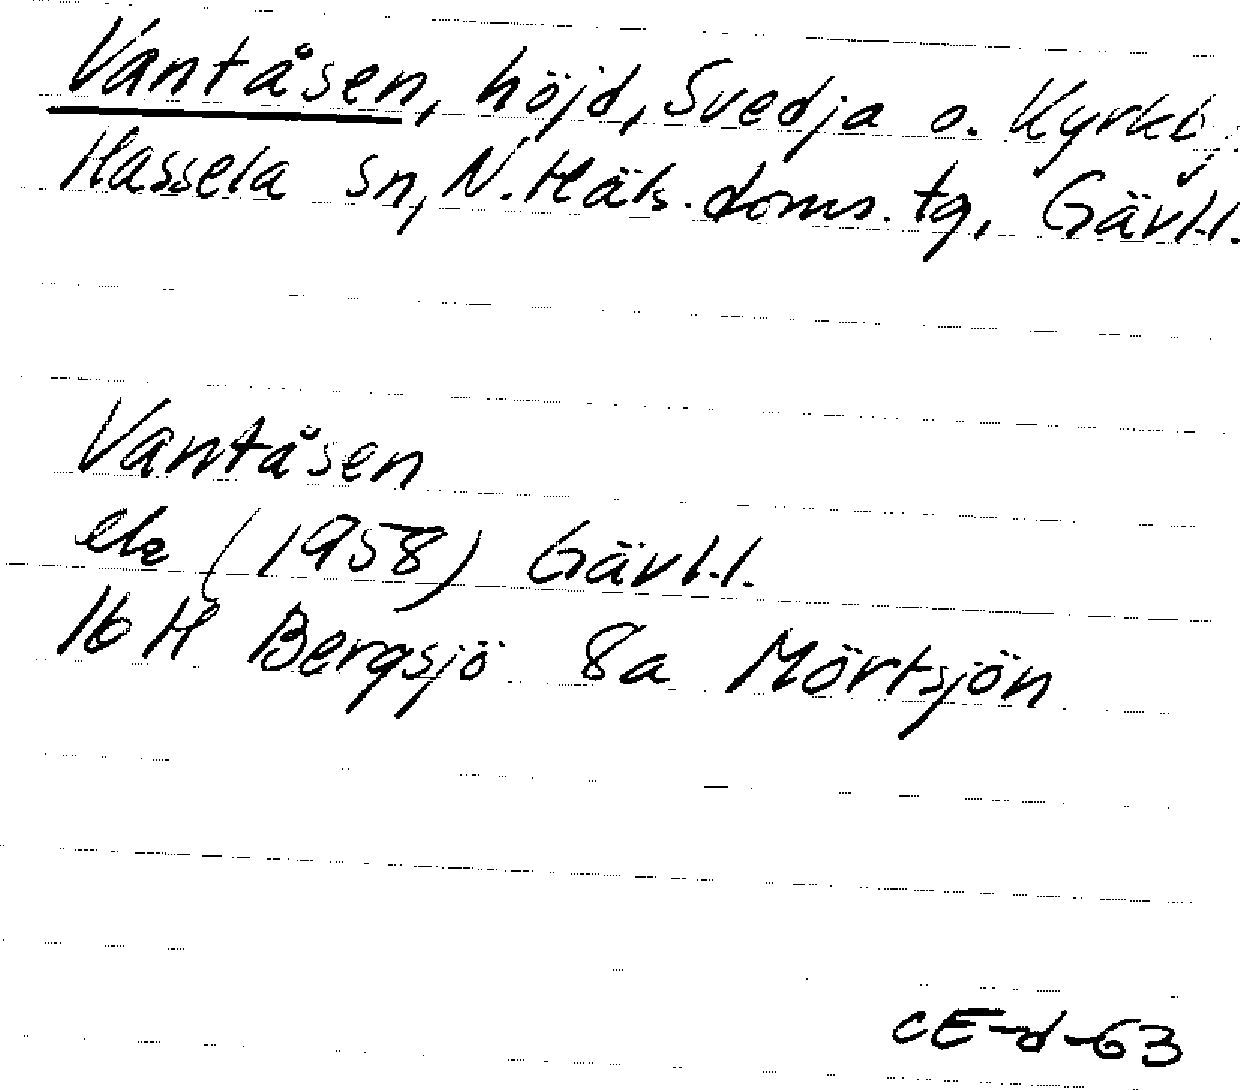 Vantåsen, höjd, Svedja o. Kyrkb,
Hassela sn, N. Häls. doms. tg, Gävl.l.
Vantåsen
ek (1958) Gävl.l.
16 H Bergsjö 8a Mörtsjön
CE-d-63